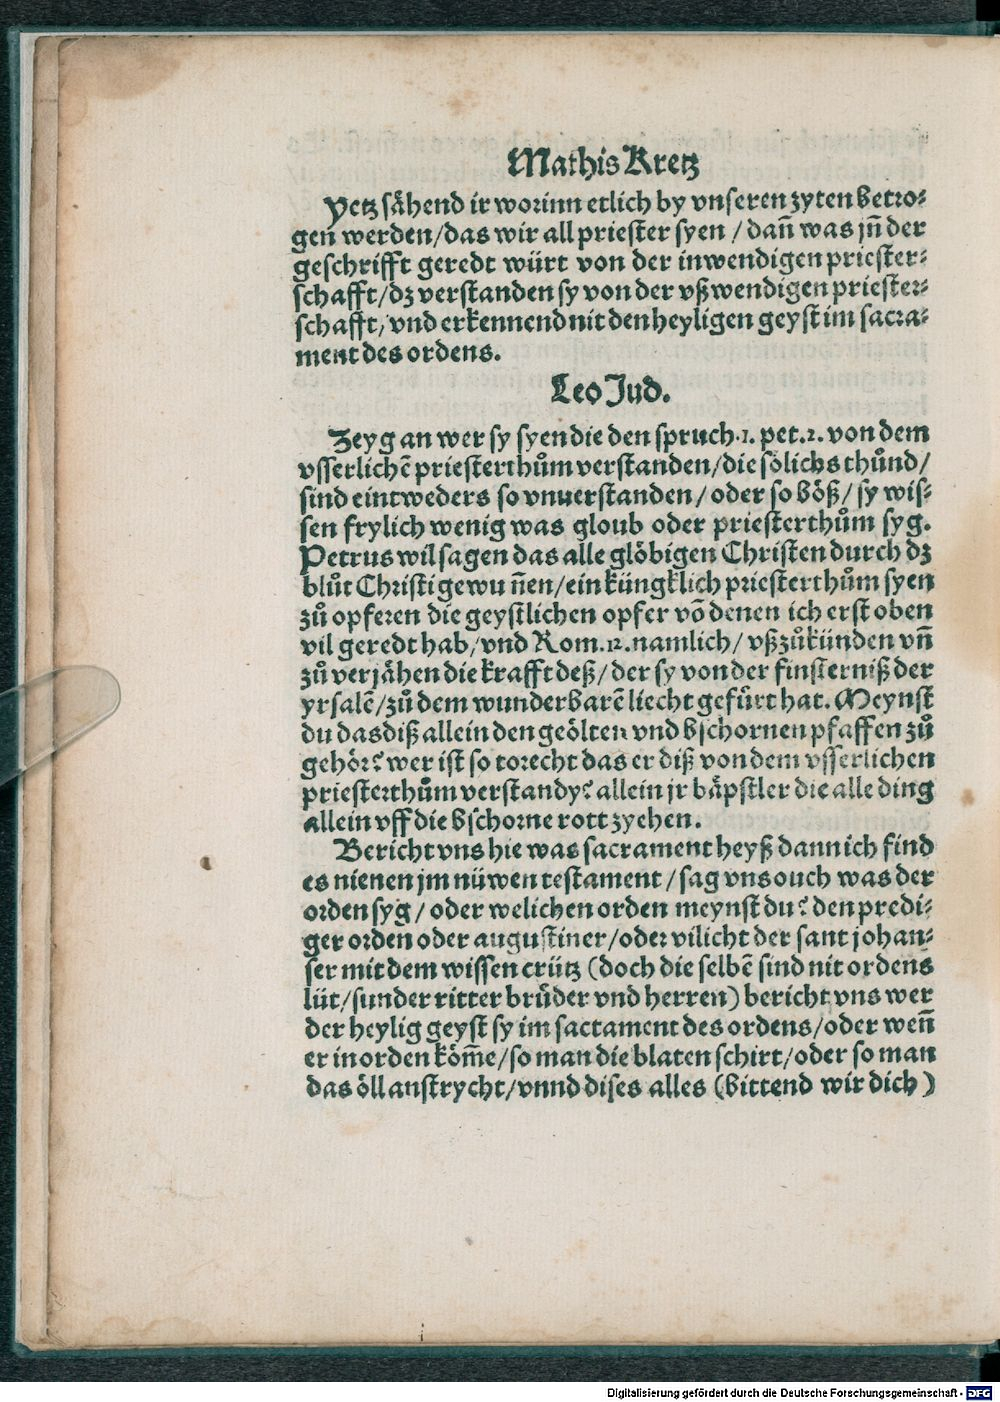 Mathis Kretz
Yetz sähend ir worinn etlich by vnseren zyten betro⸗
gen werden/das wir all priester syen / dañ was jñ der
geschrifft geredt würt von der inwendigen priester⸗
schafft/dz verstanden sy von der vßwendigen priester⸗
schafft/vnd erkennend nit den heyligen geyst im sacra⸗
ment des ordens.
Leo Jud.
Zeyg an wer sy syen die den spruch.1. pet.2. von dem
vsserlichē priesterthům verstanden/die sölichs thůnd/
sind eintweders so vnuerstanden/ oder so böß/ sy wis⸗
sen frylich wenig was gloub oder priesterthům syg.
Petrus wil sagen das alle glöbigen Christen durch dz
blůt Christi gewuñen/ein küngklich priesterthům syen
zů opferen die geystlichen opfer võ denen ich erst oben
vil geredt hab/vnd Rom.12.namlich/ vßzůkünden vñ
zů verjähen die krafft deß/ der sy von der finsterniß der
yrsalē/zů dem wunderbarē liecht gefürt hat. Meynst
du das diß allein den geölten vnd bschornen pfaffen zů
gehör? wer ist so torecht das er diß von dem vsserlichen
priesterthům verstandy? allein jr bäpstler die alle ding
allein vff die bschorne rott zyehen.
Bericht vns hie was sacrament heyß dann ich find
es nienen jm nüwen testament / sag vns ouch was der
orden syg / oder welichen orden meynst du? den predi⸗
ger orden oder augustiner/oder vilicht der sant johan⸗
ser mit dem wissen crütz (doch die selbē sind nit ordens
lüt/sunder ritter brůder vnd herren) bericht vns wer
der heylig geyst sy im sactament des ordens/oder weñ
er in orden köm̃e/so man die blaten schirt/oder so man
das öll anstrycht/vnnd dises alles (bittend wir dich)
Digitalisierung gefördert durch die Deutsche Forschungsgemeinschaft - DFG